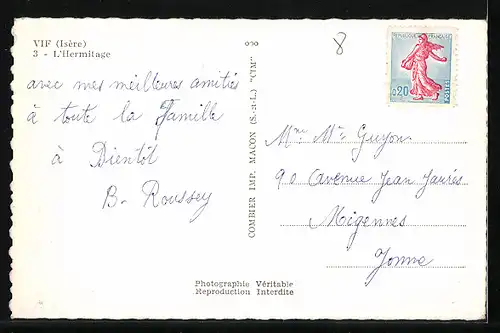 VIF (Isère)
3 - L'Hermitage
avec mes meilleures amitiés
à toute la Famille
à Bientôt
B- Roussey
COMBIER IMP. MACON (S.-et-L.) "CIM"
8
REPUBLIQUE FRANÇAISE
0,20
POSTES
Mme Mr Guyon
90 Avenue Jean Jaurès
Migennes
Yonne
Photographie Véritable
Reproduction Interdite